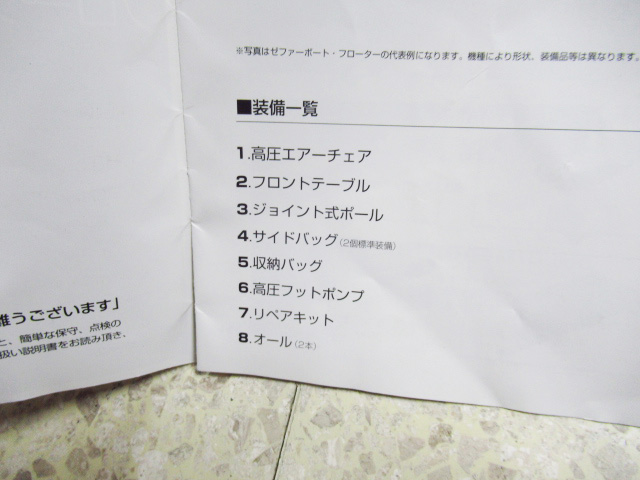 ※写真はゼファーボート・フローターの代表例になります。機種により形状、装備品等は異なります。
■装備一覧
1.高圧エアーチェア
2.フロントテーブル
3.ジョイント式ポール
4.サイドバッグ(2個標準装備)
5.収納バッグ
6.高圧フットポンプ
7.リペアキット
8.オール(2本)
難うございます」
と、簡単な保守、点検の
扱い説明書をお読み頂き、